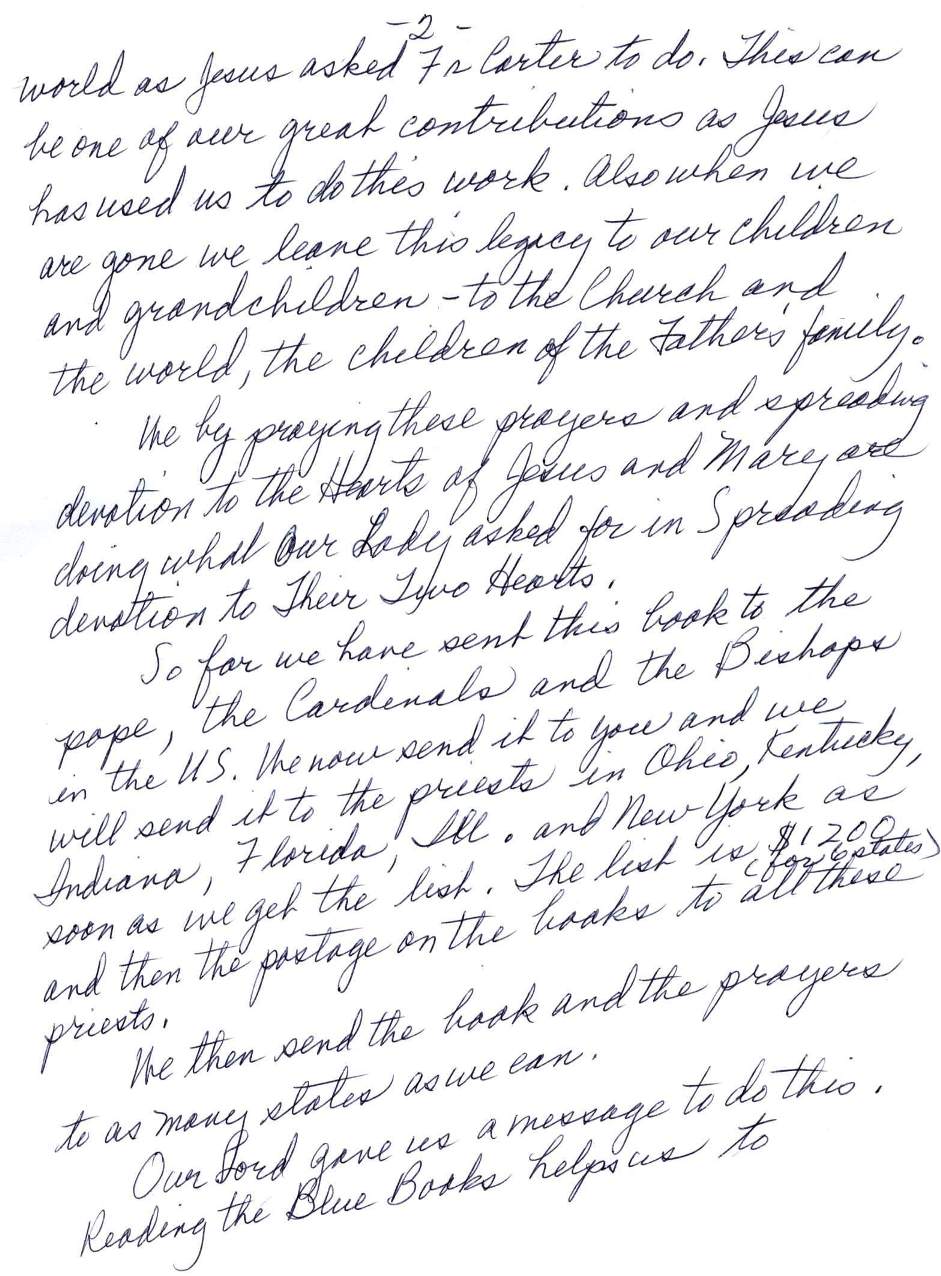 -2-
world as Jesus asked Fr Carter to do. This can
be one of our great contributions as Jesus
has used us to do this work. Also when we
are gone we leave this legacy to our children
and grandchildren - to the Church and
the world, the children of the Father's family.
We by praying these prayers and spreading
devotion to the Hearts of Jesus and Mary are
doing what Our Lady asked for in Spreading
devotion to Their Two Hearts.
So far we have sent this book to the
pope, the Cardinals and the Bishops
in the US. We now send it to you and we
will send it to the priests in Ohio, Kentucky,
Indiana, Florida, Ill. and New York as
soon as we get the list. The list is $1200
(for 6 states)
and then the postage on the books to all these
priests.
We then send the book and the prayers
to as many states as we can.
Our Lord gave us a message to do this.
Reading the Blue Books helps us to